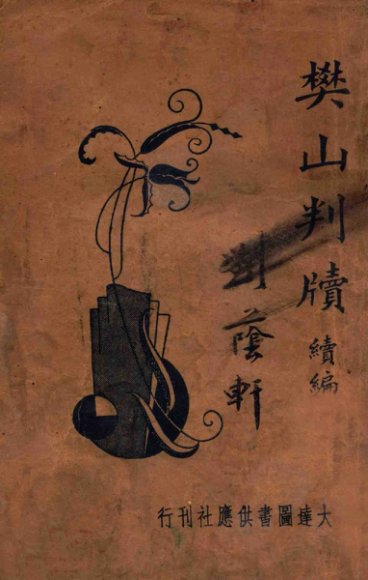 樊山判牘 續編
劉蔭軒
大達圖書供應社刊行